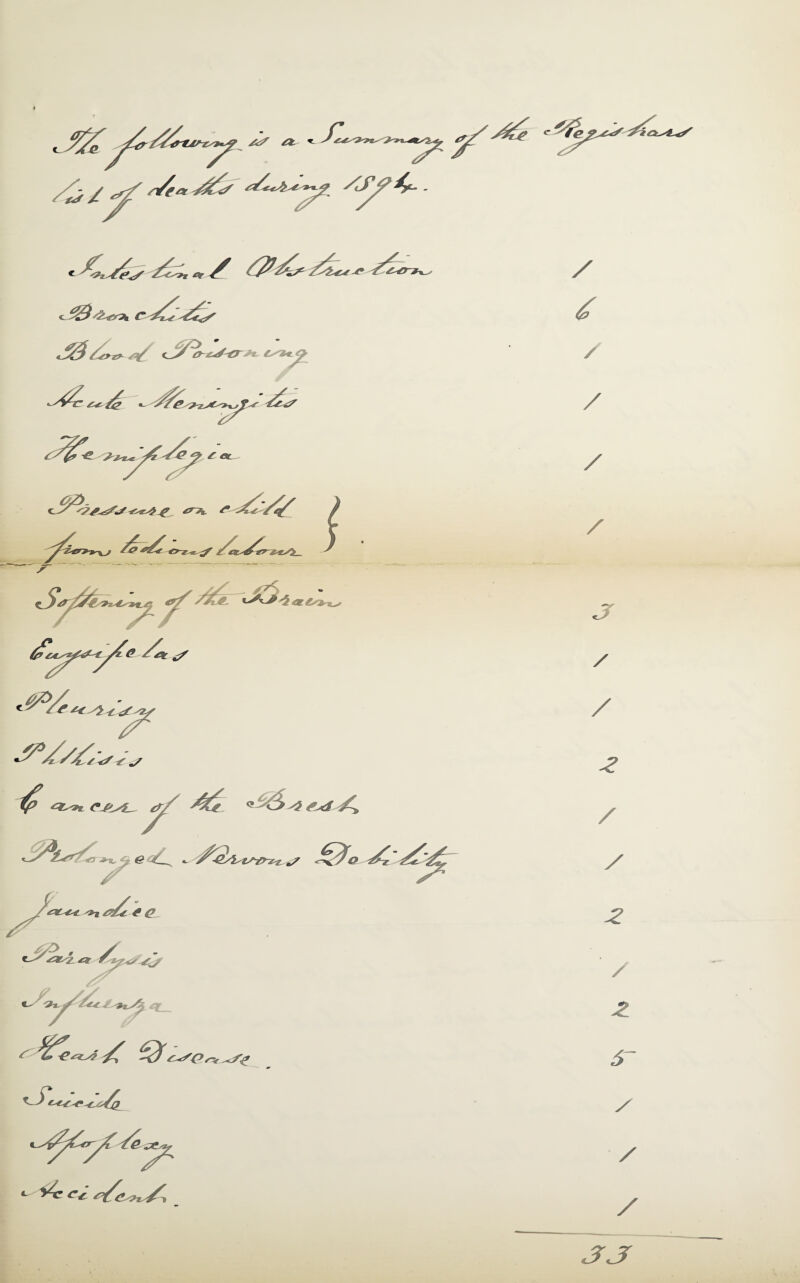 The following is a Summary of the Registhars
list of deaths during 1894.
Intestinal Obstruction 1
Bronchitis 6
Blood Poisoning 1
Acute Meningitis 1
Hemiplegia 1
Pressure on child }
from tedious labour } 1
Softening of the Brain 3
Eurysipelas 1
Pleurisy 1
Phthisis 2
Cancer of the Breast 1
Prolonged Nervous Debility 1
Jaundice 2
Paralysis 1
Influenza 2
Heart Disease. 5
Suicide 1
Apoplexy 1
Accident. 1
33